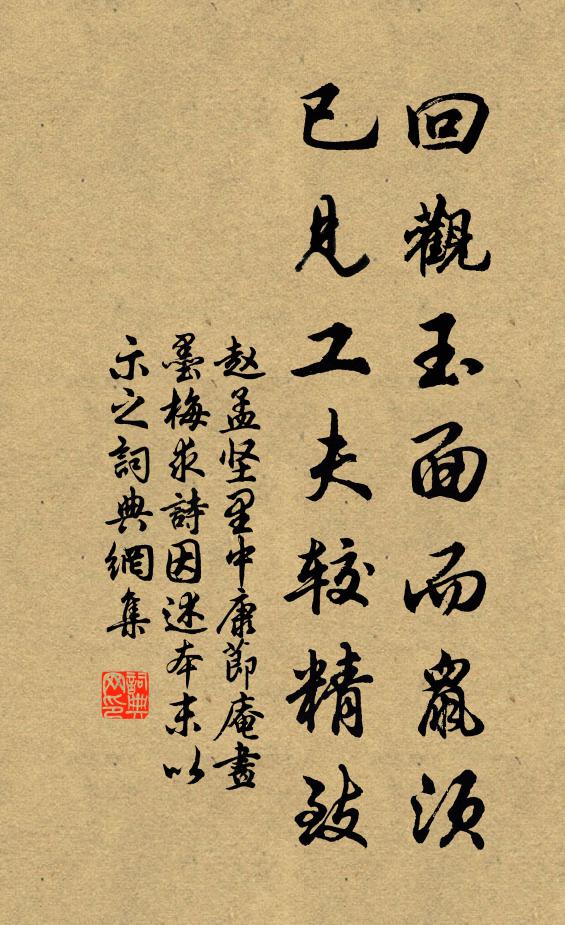 回觀玉面而鼠须
已見工夫较精致
赵孟坚里中康節庵畫
墨梅求詩因述本末以
示之詞典網集
詞典网印